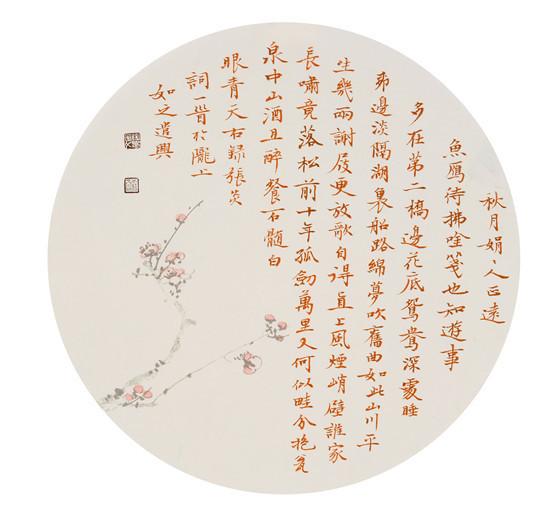 秋月娟々人正遠
魚鴈待拂吟箋也知遊事
多在第二橋邊花底鴛鴦深處睡
邊淡隔湖裏船路綿夢吹舊曲如此山川平
生幾兩謝屐更放歌自得直上風煙峭壁誰家
長嘯竟落松前十年孤劍萬里又何似畦分抱瓮
泉中山酒且醉餐石髓白
眼青天右録張炎
詞一首於隴上
如之遣興